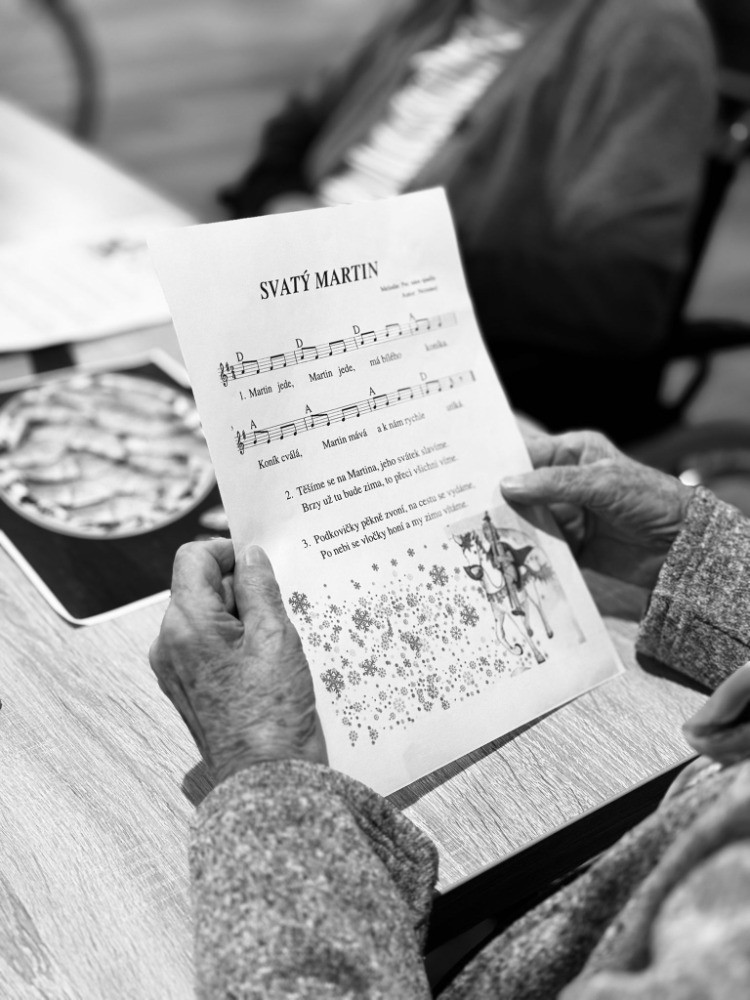 SVATÝ MARTIN
D D D A
1. Martin jede, Martin jede, má bílého koníka.
A A A D
Koník cválá, Martin mává a k nám rychle utíká.
2. Těšíme se na Martina, jeho svátek slavíme.
Brzy už tu bude zima, to přeci všichni víme.
3. Podkovičky pěkně zvoní, na cestu se vydáme.
Po nebi se vločky honí a my zimu vítáme.